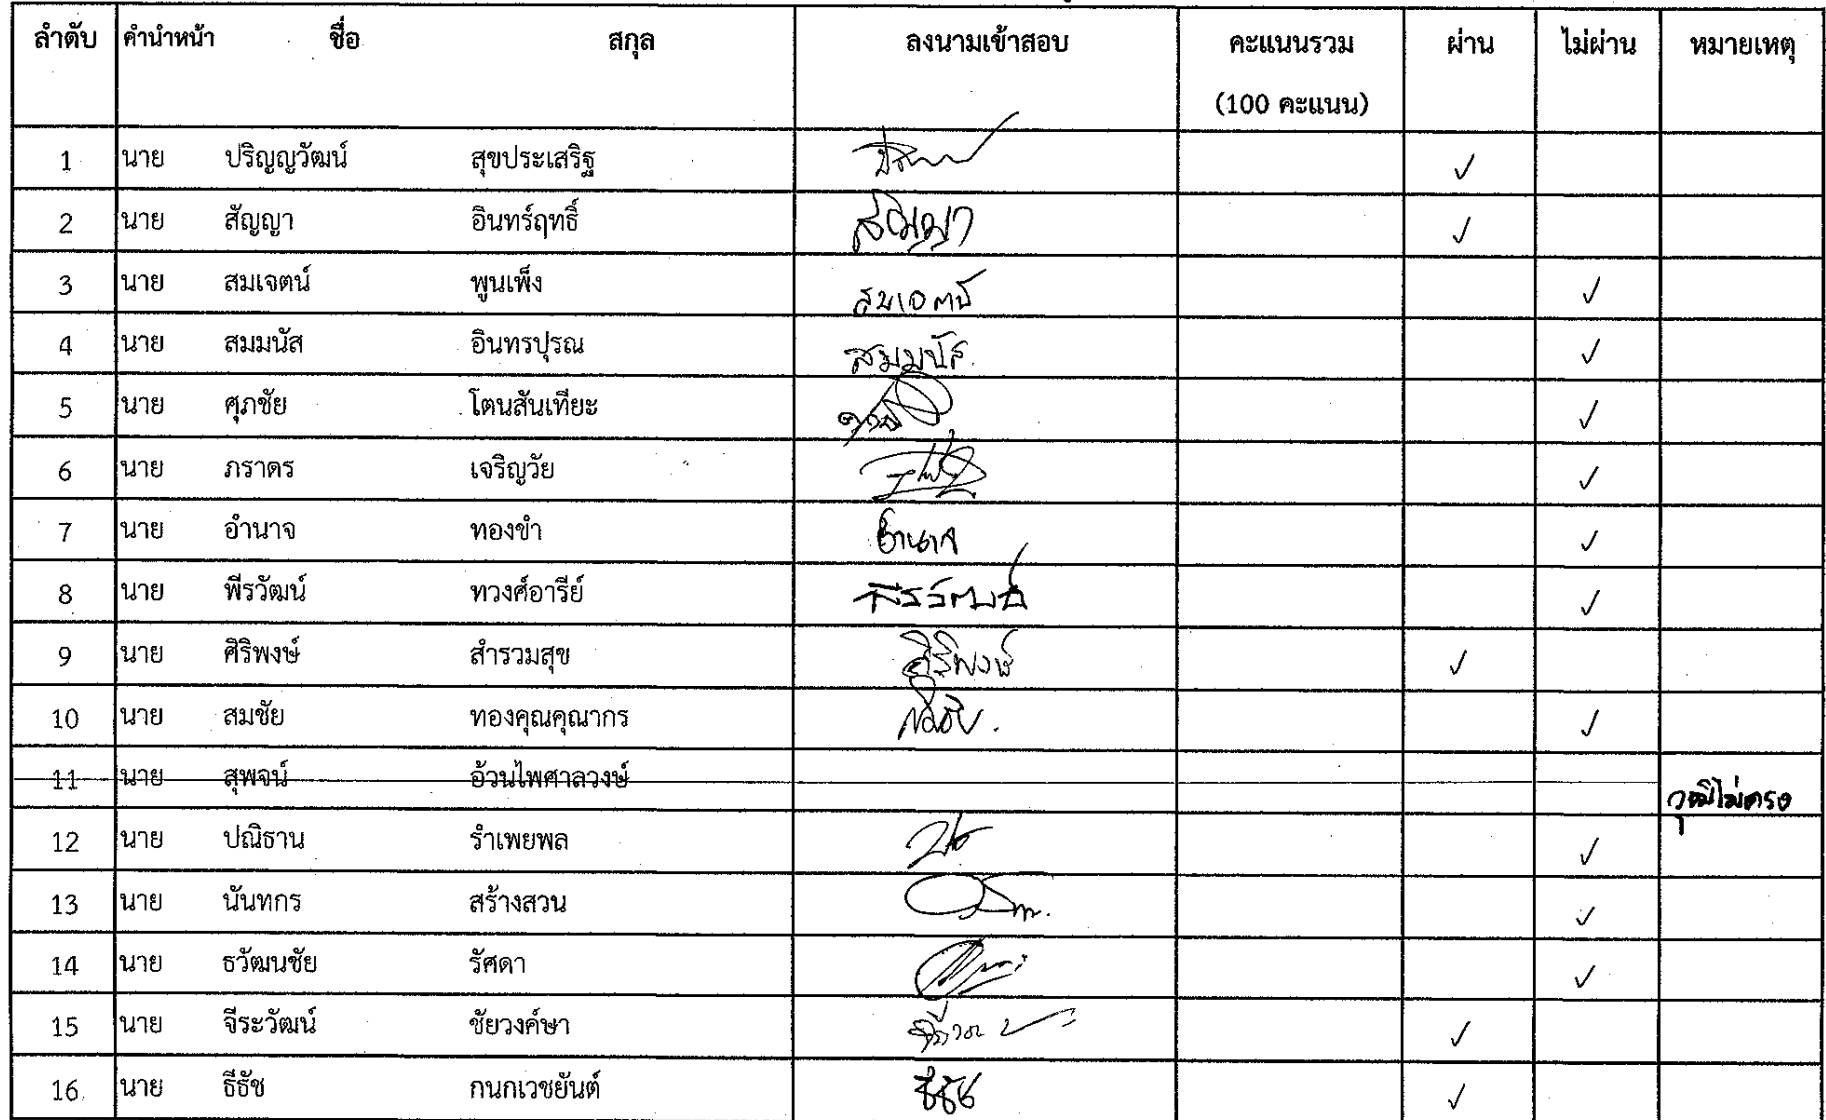 ลำดับ คำนำหน้า ชื่อ สกุล ลงนามเข้าสอบ คะแนนรวม ผ่าน ไม่ผ่าน หมายเหตุ
(100 คะแนน)
1 นาย ปริญญวัฒน์ สุขประเสริฐ ✓
2 นาย สัญญา อินทร์ฤทธิ์ สัญญา ✓
3 นาย สมเจตน์ พูนเพ็ง สมเจตน์ ✓
4 นาย สมมนัส อินทรปุรณ สมมนัส ✓
5 นาย ศุภชัย โตนสันเทียะ ✓
6 นาย ภราดร เจริญวัย ✓
7 นาย อำนาจ ทองขำ อำนาจ ✓
8 นาย พีรวัฒน์ ทวงศ์อารีย์ พีรวัฒน์ ✓
9 นาย ศิริพงษ์ สำรวมสุข ศิริพงษ์ ✓
10 นาย สมชัย ทองคุณคุณากร ✓
11 นาย สุพจน์ อ้วนไพศาลวงษ์ วุฒิไม่ตรง
12 นาย ปณิธาน รำเพยพล ✓
13 นาย นันทกร สร้างสวน ✓
14 นาย ธวัฒนชัย รัศดา ✓
15 นาย จีระวัฒน์ ชัยวงค์ษา ✓
16 นาย ธีธัช กนกเวชยันต์ ธีธัช ✓